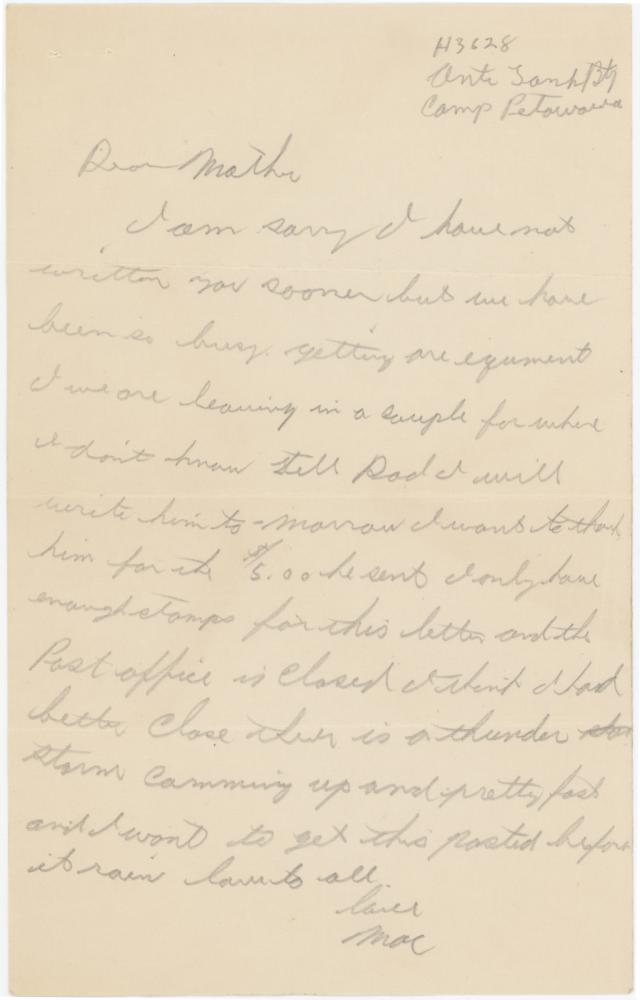 H3628
Anti Tank Btry
Camp Petawawa
Dear Mother
I am sorry I have not
written you sooner but we have
been so busy getting are equment
I we are leaving in a couple for where
I don't know tell Dad I will
write him to-morrow I want to thank
him for the $5.00 he sent I only have
enough stamps for this letter and the
Post office is closed I think I had
better close ther is a thunder
storm comming up and pretty fast
and I want to get this posted before
it rain love to all
love
Mac